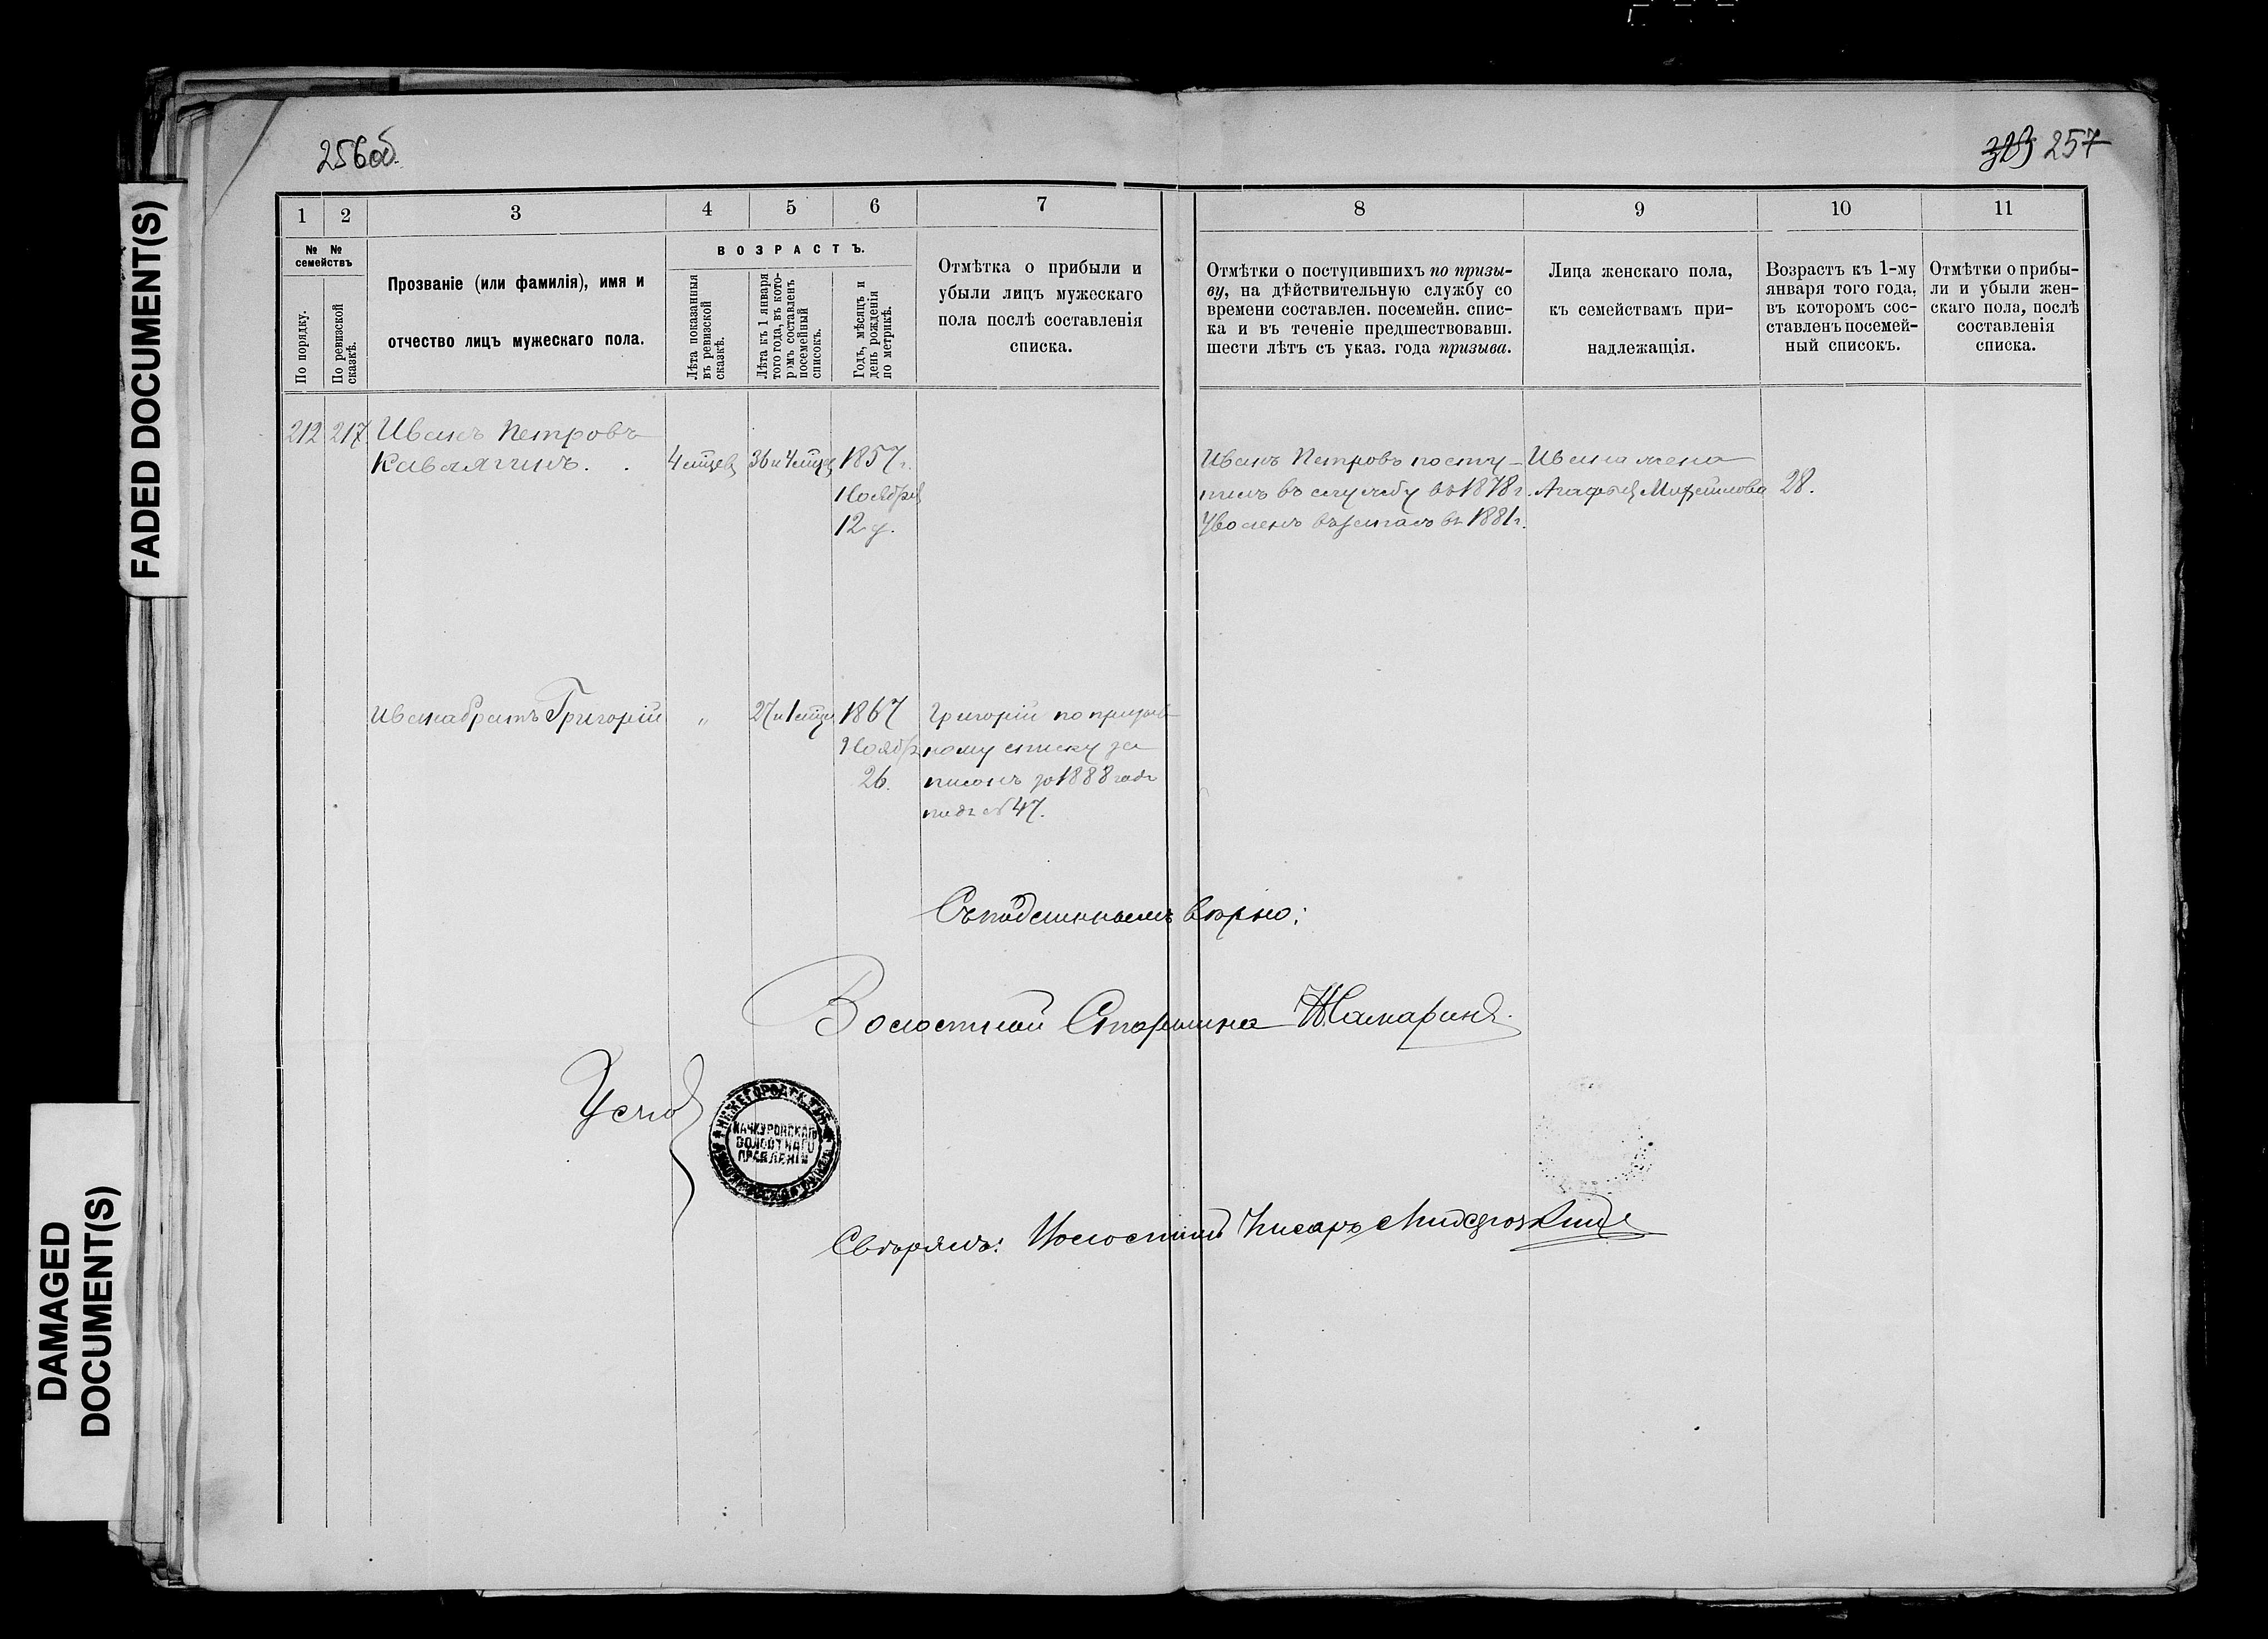 256об.
323 257
FADED DOCUMENT(S)
DAMAGED
DOCUMENT(S)
1 2 3 4 5 6 7 8 9 10 11
№ №
семействъ
По порядку.
По ревизской
сказкѣ.
Прозваніе (или фамилія), имя и
отчество лицъ мужескаго пола.
ВОЗРАСТЪ.
Лѣта показанныя
въ ревизской
сказкѣ.
Лѣта къ 1 января
того года, въ кото-
ромъ составленъ
посемейный
списокъ.
Годъ, мѣсяцъ и
день рожденія
по метрикѣ.
Отмѣтка о прибыли и
убыли лицъ мужескаго
пола послѣ составленія
списка.
Отмѣтки о поступившихъ по призы-
ву, на дѣйствительную службу со
времени составлен. посемейн. спис-
ка и въ теченіе предшествовавш.
шести лѣтъ съ указ. года призыва.
Лица женскаго пола,
къ семействамъ при-
надлежащія.
Возрастъ къ 1-му
января того года,
въ которомъ сос-
ставленъ посемей-
ный списокъ.
Отмѣтки о прибы-
ли и убыли жен-
скаго пола, послѣ
составленія
списка.
212 217 Иванъ Петровъ
Кавалягинъ.
4 мцев
36 и 4 мцев
1857 г.
Ноября
12 д.
Иванъ Петровъ посту-
пилъ въ службу въ 1878 г.
Уволенъ въ запасъ въ 1881 г.
Ивана жена
Агафья
28.
Ивана братъ Григорій
"
27 и 1 мцъ
1867
Ноября
26.
Григорій по призыв-
ному списку за
писанъ за 1888 годъ
подъ № 47.
Съ подлиннымъ вѣрно:
Волостной Старшина
НИЖЕГОРОДСК. ГУБ.
КАЧКУРОВСКАГО
ВОЛОСТНАГО
ПРАВЛЕНІЯ
Свѣрялъ: Волостной Писарь